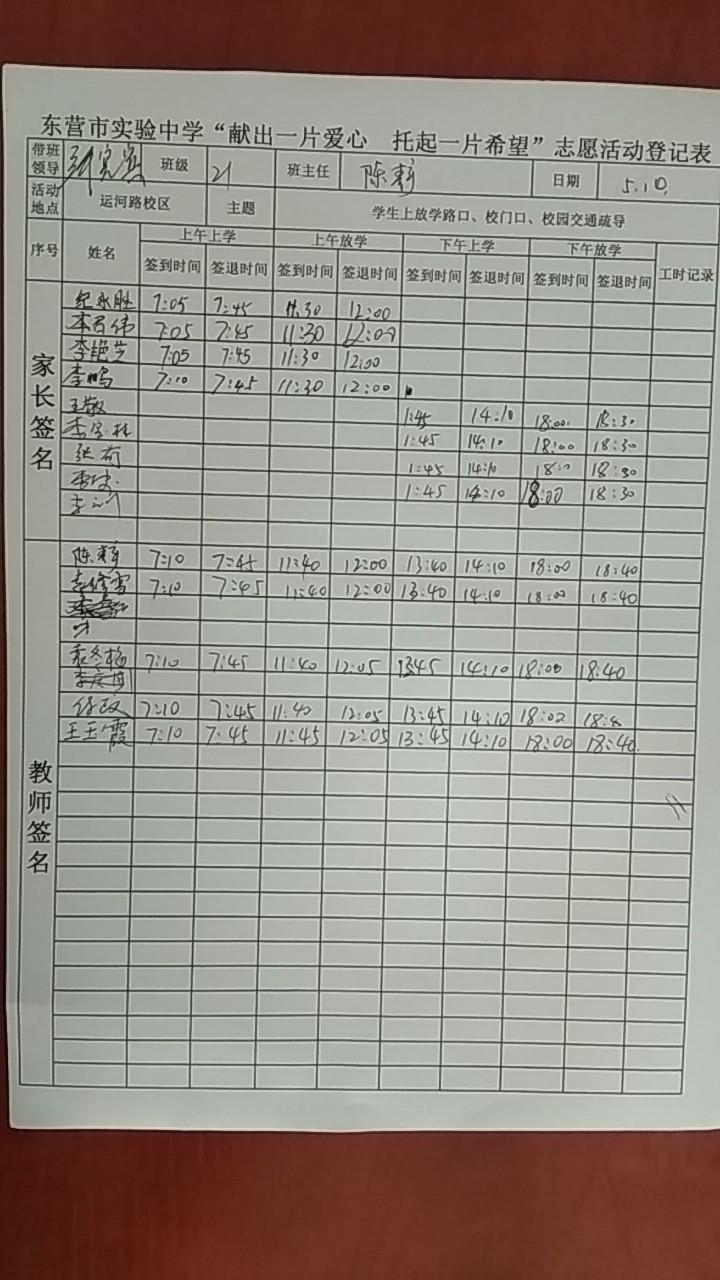 东营市实验中学“献出一片爱心 托起一片希望”志愿活动登记表
带班领导 班级 21 班主任 陈 日期 5.10
活动地点 运河路校区 主题 学生上放学路口、校门口、校园交通疏导
序号 姓名 上午上学 上午放学 下午上学 下午放学 工时记录
签到时间 签退时间 签到时间 签退时间 签到时间 签退时间 签到时间 签退时间
家长签名
纪永胜 7:05 7:45 11:30 12:00
李君伟 7:05 7:45 11:30 12:00
李艳芝 7:05 7:45 11:30 12:00
李鸣 7:10 7:45 11:30 12:00
王敬 1:45 14:10 18:00 18:30
1:45 14:10 18:00 18:30
张 1:45 14:10 18:30
1:45 14:10 18:00 18:30
李
教师签名
陈 7:10 7:45 11:40 12:00 13:40 14:10 18:00 18:40
7:10 7:45 11:40 12:00 13:40 14:10 18:00 18:40
袁冬梅 7:10 7:45 11:40 12:05 13:45 14:10 18:00 18:40
7:10 7:45 11:40 12:05 13:45 14:10 18:02
王玉霞 7:10 7:45 11:45 12:05 13:45 14:10 18:00 18:40